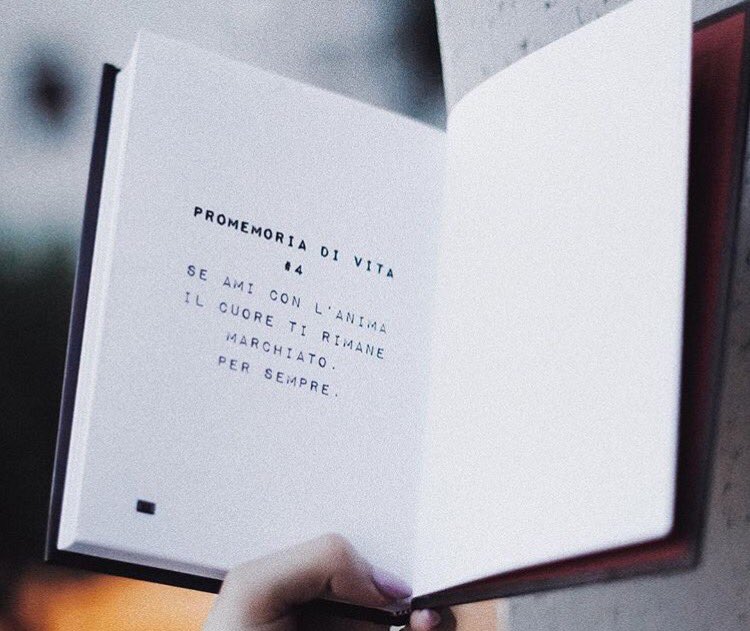 PROMEMORIA DI VITA
#4
SE AMI CON L'ANIMA
IL CUORE TI RIMANE
MARCHIATO.
PER SEMPRE.